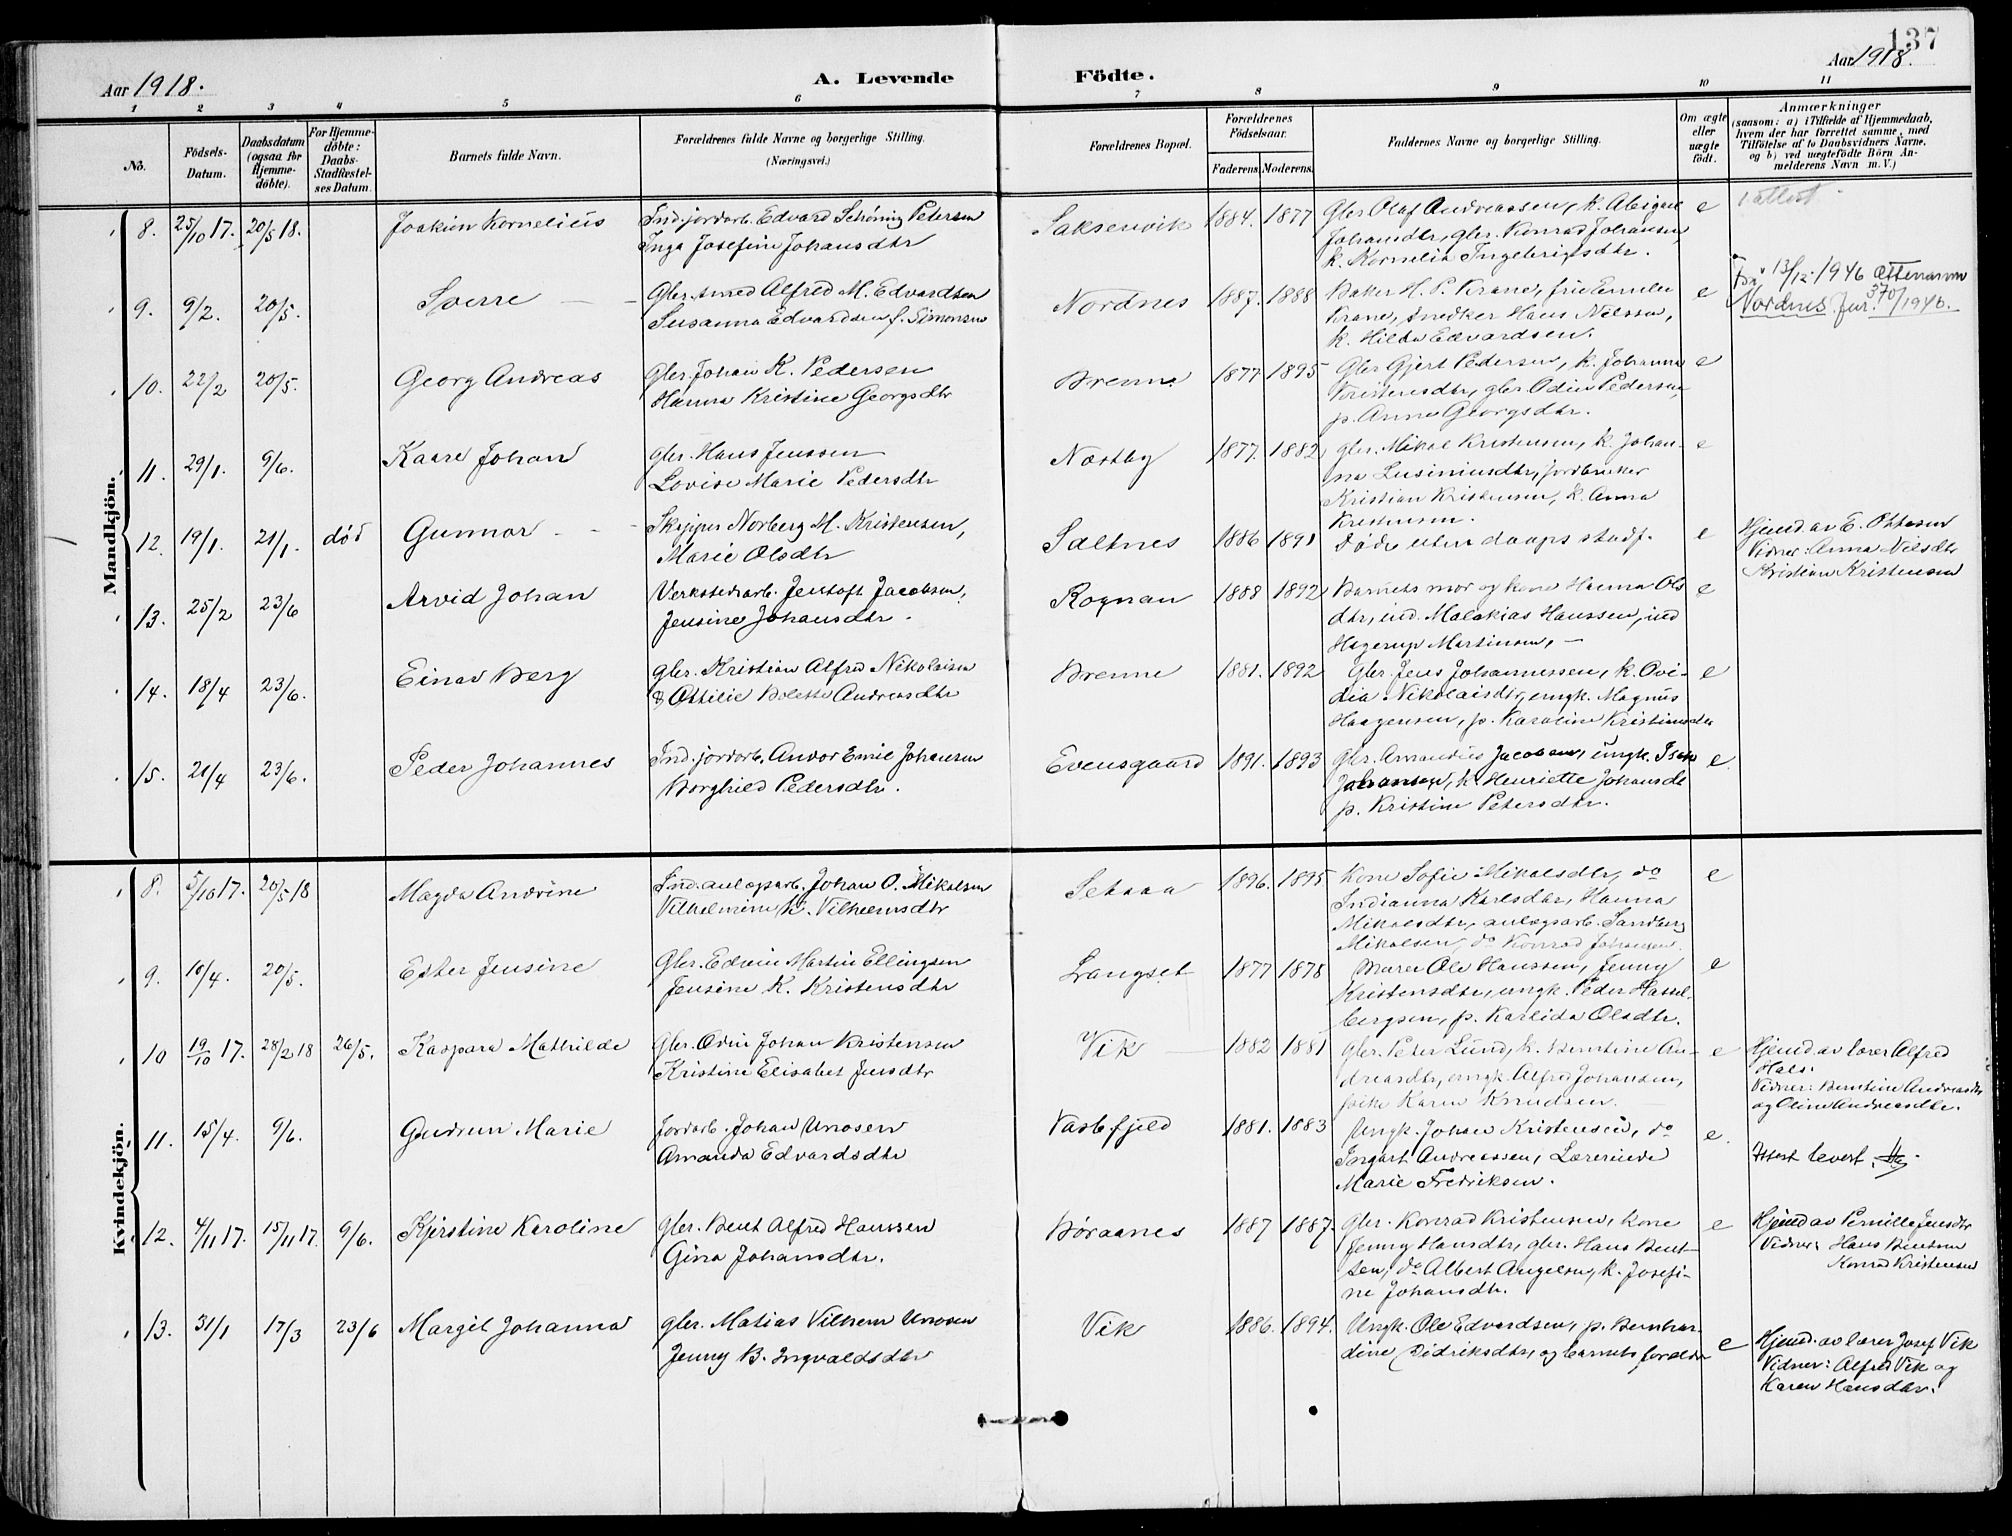 137
Aar 1918.
A. Levende Födte.
Aar 1918.
1 2 3 4 5 6 7 8 9 10 11
No.
Födsels-Datum.
Daabsdatum (ogsaa for Hjemme-döbte).
For Hjemme-döbte: Daabs-Stadfæstel-ses Datum.
Barnets fulde Navn.
Forældrenes fulde Navne og borgerlige Stilling.
(Næringsvei.)
Forældrenes Bopæl.
Forældrenes Födselsaar.
Faderens. Moderens.
Faddernes Navne og borgerlige Stilling.
Om ægte eller uægte födt.
Anmærkninger
(saasom: a) i Tilfælde af Hjemmedaab,
hvem der har forrettet samme, med
Tilföielse af to Daabsvidners Navne,
og b) ved uægtefödte Börn An-
melderens Navn m. V.)
Mandkjön.
8. 25/10 17. 20/5 18. Joakim Kornelius
Ind. jordarb. Edvard Schöning Petersen
Inga Josefine Johansdtr
Saksenvik 1884. 1877
Gbr Olaf Andreassen, k. Abigael
Johansdtr, gbr. Konrad Johansen,
k. Kornelia Ingebrigtsdtr.
e
9. 9/2. 20/5. Sverre
Gbr. smed Alfred M. Edvardsen
Susanna Edvardsen f. Simonsen
Nordnes 1887. 1888
Baker H. P. Krane, frue Emilie
Krane, snedker Hans Nilssen,
k. Hilda Edvardsen.
e
13/12 1946 ættenavn
Nordnes Jnr. 370/1946.
10. 22/2 20/5. Georg Andreas
Gbr. Johan K. Pedersen
Hanna Kristine Georgsdtr
Brenne 1877 1895
Gbr Gjert Pedersen, k. Johanna
Torstensdtr, gbr. Odin Pedersen,
p. Anna Georgsdtr.
e
11. 29/1. 9/6. Kaare Johan
gbr. Hans Jenssen
Lovise Marie Pedersdtr
Næstby 1877. 1882
gbr. Mikal Kristensen, k. Johan-
na Lusiniusdtr, jordbruker
Kristian Kristensen, k. Anna
Kristensen.
e
12. 19/1. 21/1. död Gunnar
Skipper Norberg M. Kristensen,
Marie Olsdtr
Saltnes 1886 1891
Döde uten daaps stadf.
e
Hjemd. av E. Ottesen
Vidner: Anna Nilsdtr
Kristian Kristensen
13. 25/2 23/6 Arvid Johan
Verkstedarb. Jentoft Jacobsen,
Jensine Johansdtr.
Rognan 1888 1892
Barnets mor og kone Hanna Ols
dtr, ind. Malakias Hanssen, ind
Hagerup Martinsen,
e
14. 18/4 23/6. Einar Berg
gbr. Kristian Alfred Nikolaisen
& Ottilie Bolette Andreasdtr
Brenne 1881. 1892
Gbr. Jens Johannessen, k. Ovi-
dia Nikolaisdtr, ungk. Magnus
Haagensen, p. Karoline Kristiansdtr
e
15. 21/4 23/6. Peder Johannes
Ind. jordarb. Andor Emil Johansen
Borghild Pedersdtr.
Evensgaard 1891. 1893
Gbr. Amandus Jacobsen, ungk. Isak
Johansen, k. Henriette Johansdt
p. Kristine Petersdtr.
e.
Kvindekjön.
8. 5/10 17. 20/5 18 Magda Andrine
Ind. anlægsarb. Johan O. Mikalsen
Vilhelmine K. Vilhelmsdtr
Setsaa 1896. 1895
Kone Sofie Mikalsdtr, do
Indianna Karlsdtr, Hanna
Mikalsdtr, anlægsarb. Sandberg
Mikalsen, do Konrad Johansen.
e
9. 10/4. 20/5. Ester Jensine
Gbr. Edvin Martin Ellingsen
Jensine K. Kristensdtr
Langset 1877 1878
Murer Ole Hanssen, Jenny
Kristensdtr, ungk. Peder Hassel-
bergsen, p. Karlida Olsdtr.
e
10 19/10 17. 28/2 18 26/5. Kaspara Mathilde
Gbr. Odin Johan Kristensen
Kristine Elisabet Jensdtr
Vik 1882 1881
gbr. Peter Lund, k. Berntine An-
dreasdtr, ungk. Alfred Johansen,
pike Karen Knudsen.
e
Hjemd av lærer Alfred
Hals.
Vidner: Berntine Andreasdtr
og Oline Andreasdtr.
11. 15/4. 9/6. Gudrun Marie
Jordarb. Johan Unosen
Amanda Edvardsdtr
Vasbfjeld 1881. 1883
Ungk. Johan Kristensen, do
Ingart Andreassen, Lærerinde
Marie Fredriksen.
e.
Attest levert.
12. 4/11 17. 15/11 17. 9/6. Kjerstine Karoline
Gbr. Bent Alfred Hanssen
Gina Johansdtr.
Böraanes 1887 1887.
Gbr. Konrad Kristensen, kone
Jenny Hansdtr, gbr. Hans Bent-
sen, do Albert Angelsen, k. Josefi-
ne Johansdtr.
e
Hjemd av Pernille Jensdtr
Vidner: Hans Bentsen
Konrad Kristensen
13. 31/1 17/3 23/6 Margit Johanna
gbr. Matias Vilhem Unosen
Jenny B. Ingvaldsdtr
Vik 1886. 1894.
Ungk. Ole Edvardsen, p. Bernhar-
dine Didriksdtr, og barnets foreldre
e
Hjemd. av lærer Josef Vik
Vidner: Alfred Vik og
Karen Hansdtr.